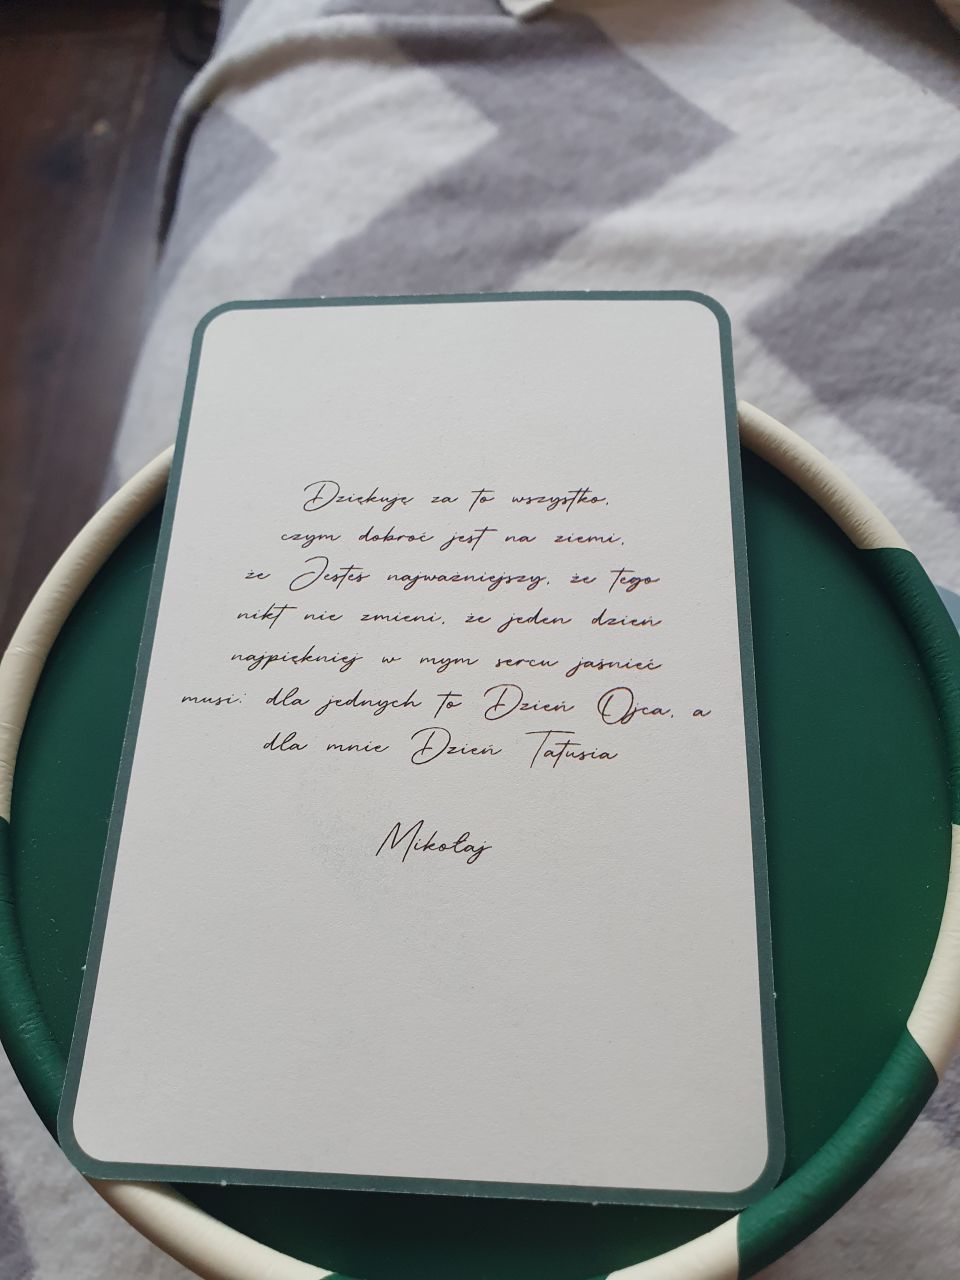 Dziękuję za to wszystko,
czym dobroć jest na ziemi,
że Jesteś najważniejszy, że tego
nikt nie zmieni, że jeden dzień
najpiękniej w mym sercu jaśnieć
musi: dla jednych to Dzień Ojca, a
dla mnie Dzień Tatusia
Mikołaj